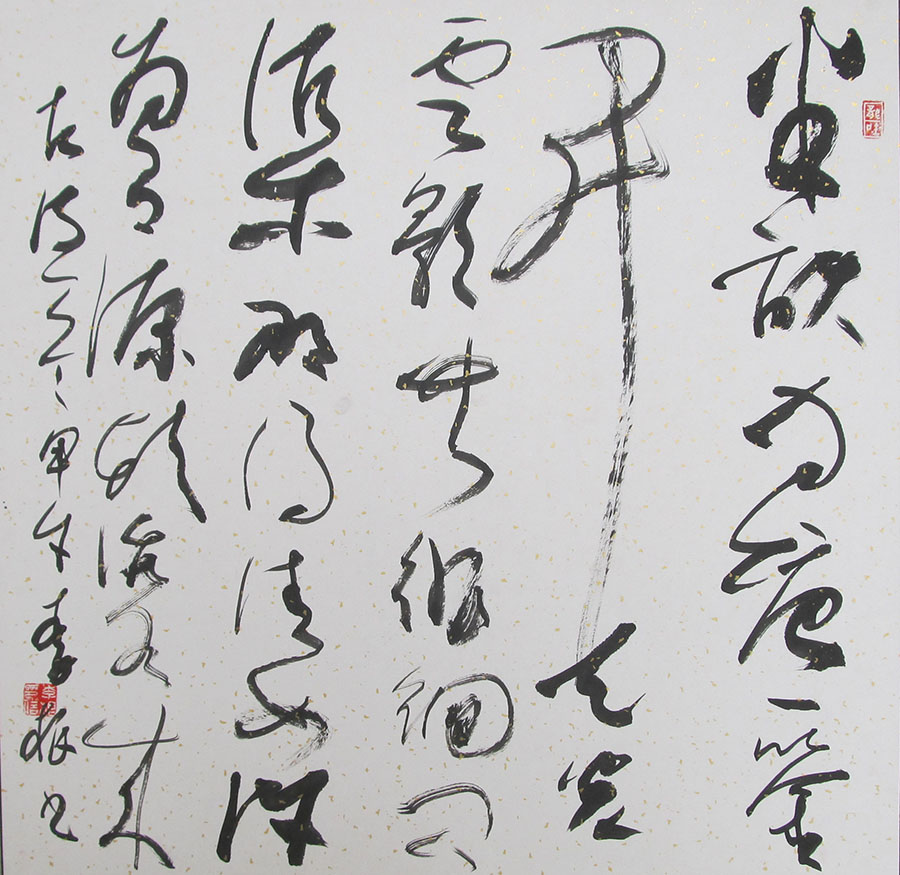 半畝方塘一鑒
開天光
雲影共徘徊問
渠那得清如許
為有源頭活水來
古詩一首甲午李振書